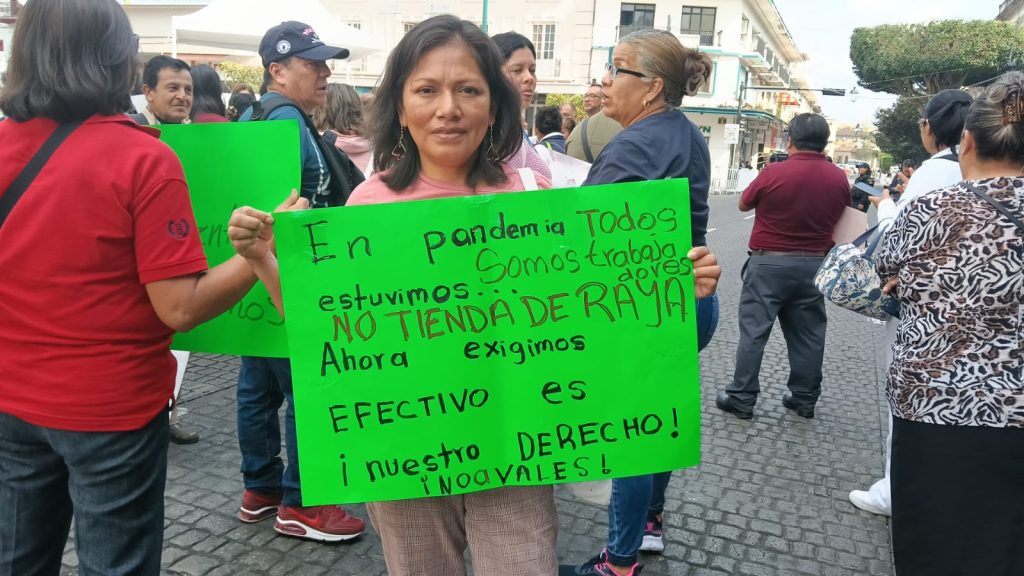 En pandemia Todos
Somos trabaja
dores
estuvimos...
NO TIENDA DE RAYA
Ahora exigimos
EFECTIVO es
¡nuestro DERECHO!
¡NO A VALES!